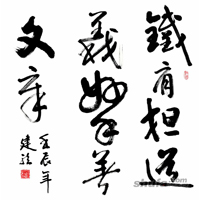 鐵肩担道
義妙手著
文章
壬辰年
建